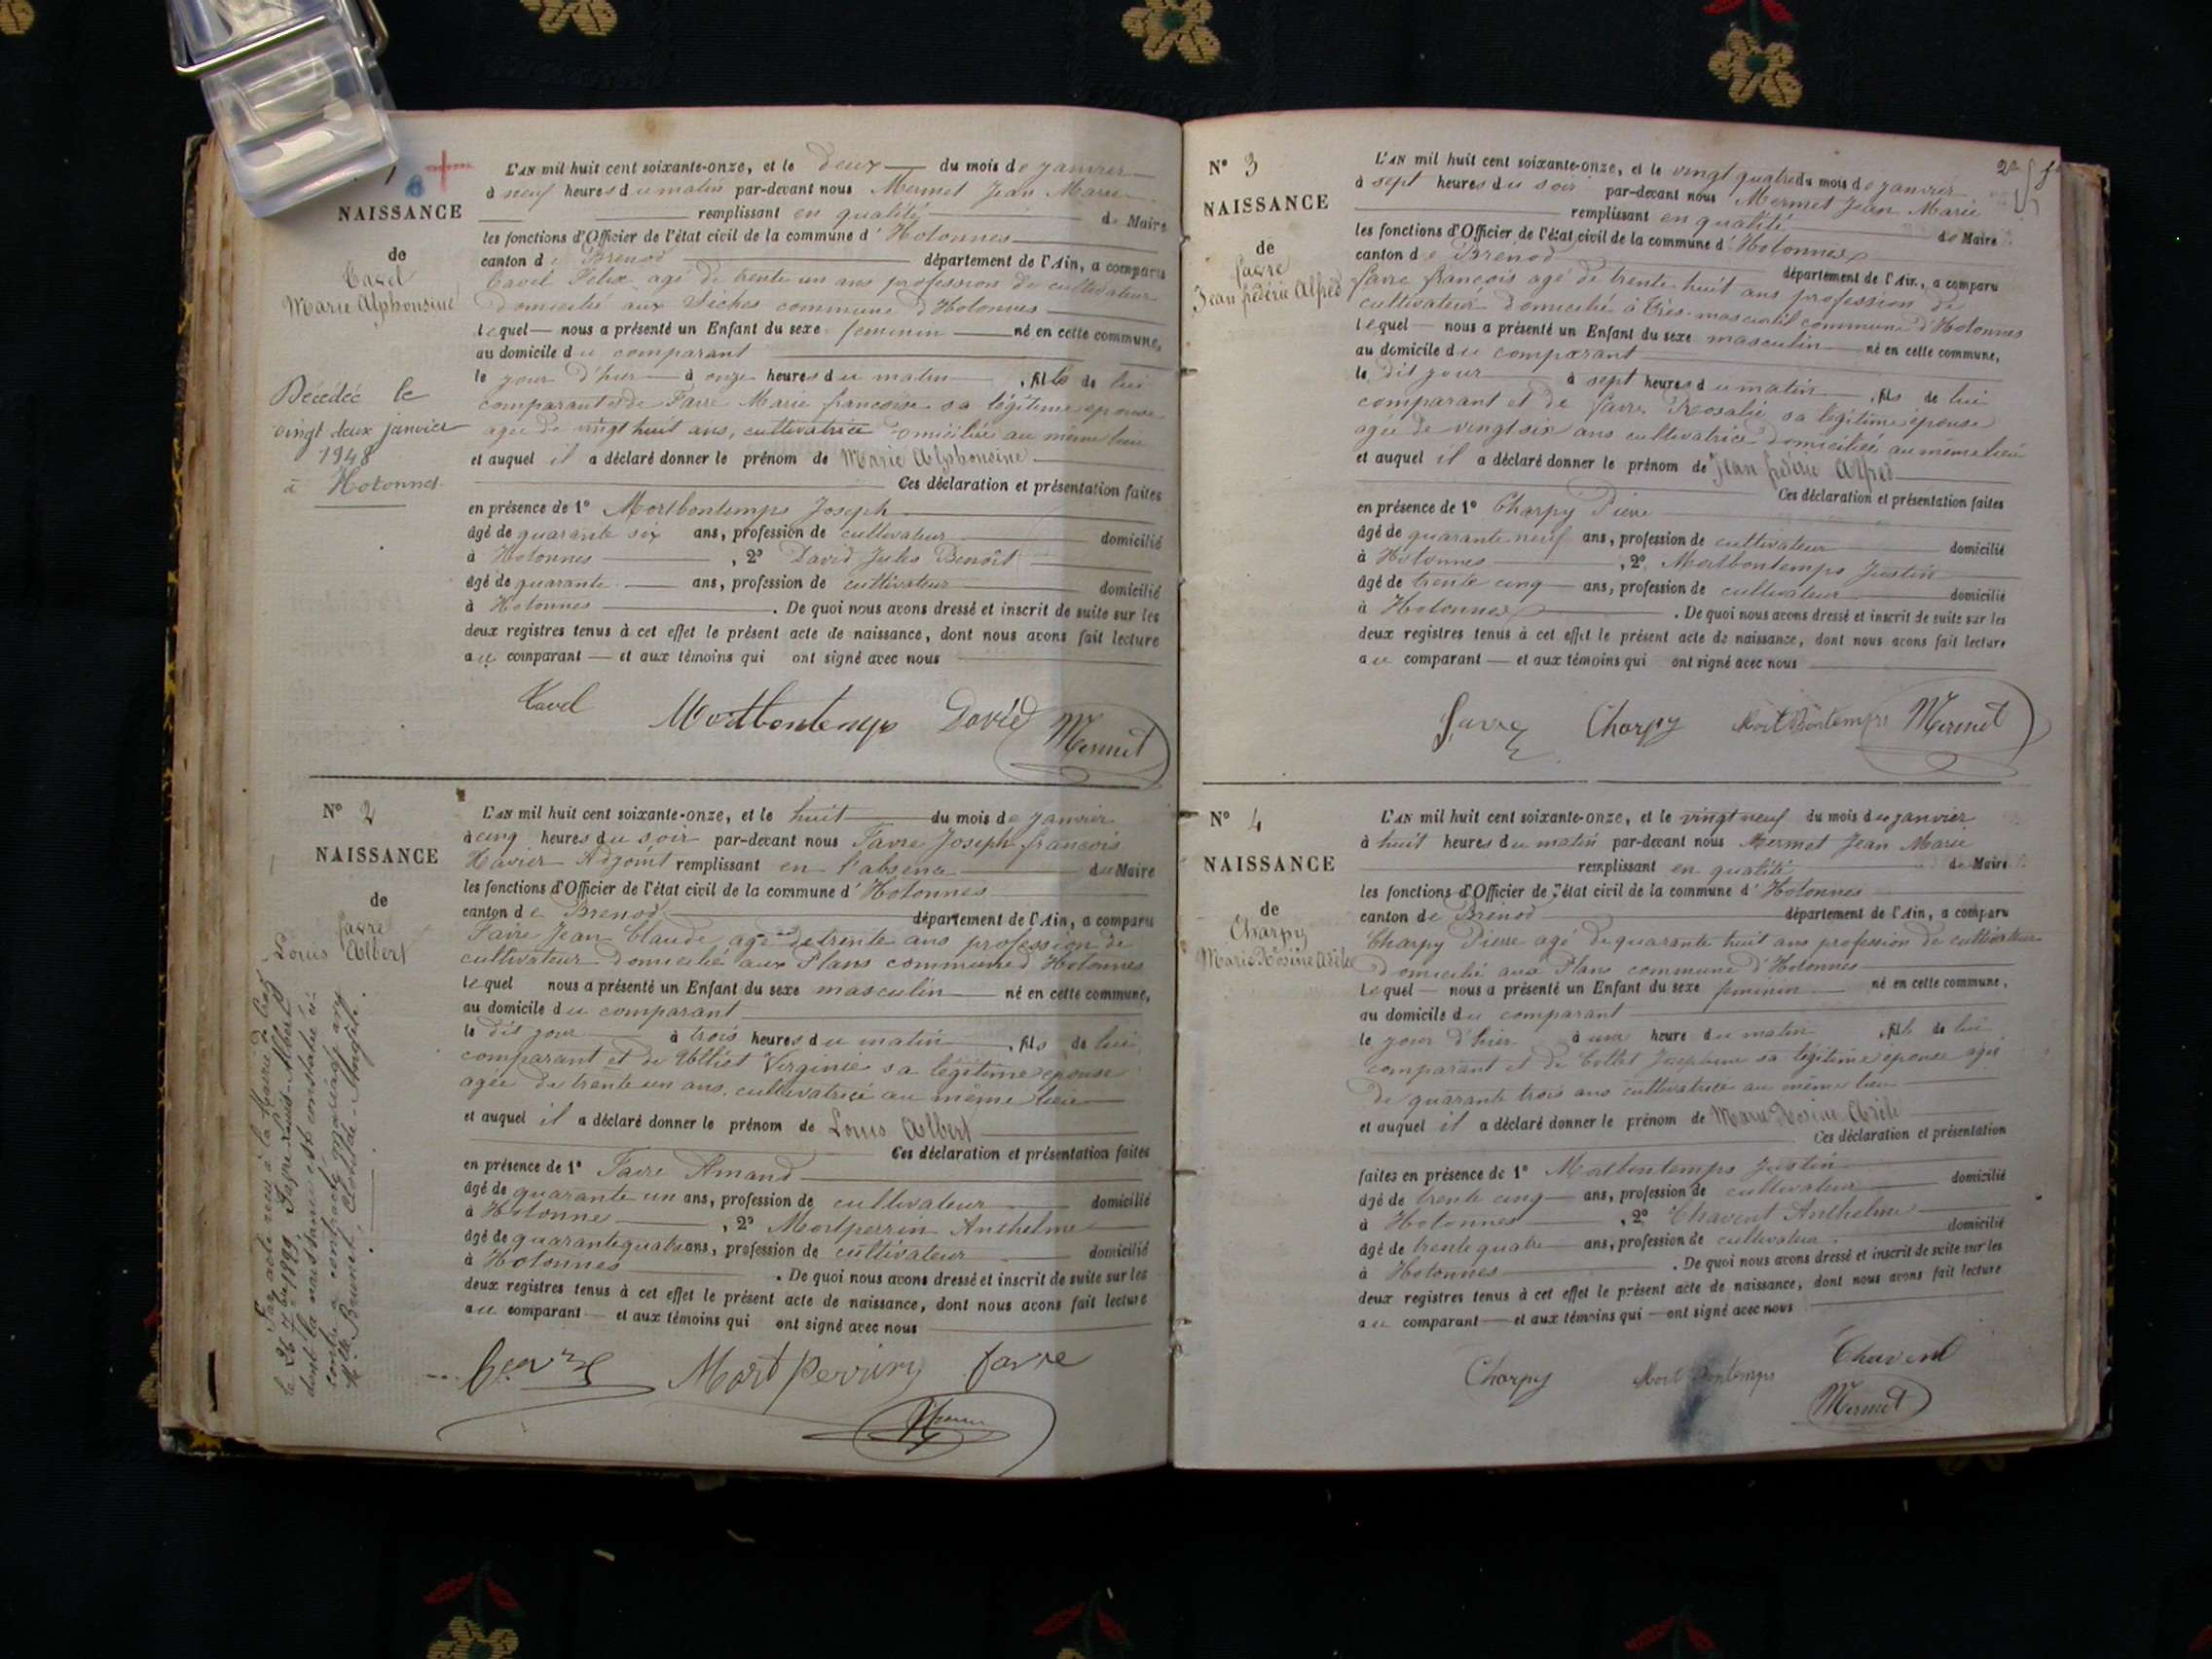 1
8
NAISSANCE
de
Cavel
Marie Alphonsine
Décédée le
vingt deux janvier
1948
à Hotonnes
L'AN mil huit cent soixante-onze, et le deux du mois de janvier
à neuf heures du matin par-devant nous Mermet Jean Marie
remplissant en qualité de Maire
les fonctions d'Officier de l'état civil de la commune d'Hotonnes
canton de Brenod département de l'Ain, a comparu
Cavel Félix agé de trente un ans profession de cultivateur
domicilié aux Sèches commune d'Hotonnes
lequel nous a présenté un Enfant du sexe feminin né en cette commune,
au domicile du comparant
le jour d'hier à onze heures du matin, fils de lui
comparant et de Favre Marie françoise sa légitime épouse
agée de vingt huit ans, cultivatrice domiciliée au même lieu
et auquel il a déclaré donner le prénom de Marie Alphonsine
Ces déclaration et présentation faites
en présence de 1° Mortbontemps Joseph
âgé de quarante six ans, profession de cultivateur domicilié
à Hotonnes, 2° David Jules Benoît
âgé de quarante ans, profession de cultivateur domicilié
à Hotonnes. De quoi nous avons dressé et inscrit de suite sur les
deux registres tenus à cet effet le présent acte de naissance, dont nous avons fait lecture
au comparant et aux témoins qui ont signé avec nous
Cavel Mortbontemps David Mermet
N° 2
NAISSANCE
de
Favre
Louis Albert
Par acte reçu à la Mairie de
le 26 7bre 1899, Favre Louis-Albert
dont la naissance est constatée ci-
contre a contracté mariage avec
Mlle Brunet, Clotilde-
L'AN mil huit cent soixante-onze, et le huit du mois de janvier
à cinq heures du soir par-devant nous Favre Joseph françois
Xavier Adjoint remplissant en l'absence du Maire
les fonctions d'Officier de l'état civil de la commune d'Hotonnes
canton de Brenod département de l'Ain, a comparu
Favre Jean Claude agé de trente ans profession de
cultivateur domicilié aux Plans commune d'Hotonnes
lequel nous a présenté un Enfant du sexe masculin né en cette commune,
au domicile du comparant
le dit jour à trois heures du matin, fils de lui
comparant et de Virginie sa légitime épouse
agée de trente un ans, cultivatrice au même lieu
et auquel il a déclaré donner le prénom de Louis Albert
Ces déclaration et présentation faites
en présence de 1° Favre Amand
âgé de quarante un ans, profession de cultivateur domicilié
à Hotonnes, 2° Mortperrin Anthelme
âgé de quarante quatre ans, profession de cultivateur domicilié
à Hotonnes. De quoi nous avons dressé et inscrit de suite sur les
deux registres tenus à cet effet le présent acte de naissance, dont nous avons fait lecture
au comparant et aux témoins qui ont signé avec nous
Favre Mortperrin favre
N° 3
NAISSANCE
de
favre
Jean frédéric Alfred
L'AN mil huit cent soixante-onze, et le vingt quatre du mois de janvier
à sept heures du soir par-devant nous Mermet Jean Marie
remplissant en qualité de Maire
les fonctions d'Officier de l'état civil de la commune d'Hotonnes
canton de Brenod département de l'Ain, a comparu
favre françois agé de trente huit ans profession de
cultivateur domicilié à commune d'Hotonnes
lequel nous a présenté un Enfant du sexe masculin né en cette commune,
au domicile du comparant
le dit jour à sept heures du matin, fils de lui
comparant et de favre Rosalie sa légitime épouse
agée de vingt six ans cultivatrice domiciliée au même lieu
et auquel il a déclaré donner le prénom de Jean frédéric Alfred
Ces déclaration et présentation faites
en présence de 1° Charpy Pierre
âgé de quarante neuf ans, profession de cultivateur domicilié
à Hotonnes, 2° Mortbontemps Justin
âgé de trente cinq ans, profession de cultivateur domicilié
à Hotonnes. De quoi nous avons dressé et inscrit de suite sur les
deux registres tenus à cet effet le présent acte de naissance, dont nous avons fait lecture
au comparant et aux témoins qui ont signé avec nous
favre Charpy Mortbontemps Mermet
N° 4
NAISSANCE
de
Charpy
Marie Rosine Adèle
L'AN mil huit cent soixante-onze, et le vingt neuf du mois de janvier
à huit heures du matin par-devant nous Mermet Jean Marie
remplissant en qualité de Maire
les fonctions d'Officier de l'état civil de la commune d'Hotonnes
canton de Brenod département de l'Ain, a comparu
Charpy Pierre agé de quarante huit ans profession de cultivateur
domicilié aux Plans commune d'Hotonnes
lequel nous a présenté un Enfant du sexe feminin né en cette commune,
au domicile du comparant
le jour d'hier à une heure du matin, fils de lui
comparant et de Collet Josephine sa légitime épouse agée
de quarante trois ans cultivatrice au même lieu
et auquel il a déclaré donner le prénom de Marie Rosine Adèle
Ces déclaration et présentation
faites en présence de 1° Mortbontemps Justin
âgé de trente cinq ans, profession de cultivateur domicilié
à Hotonnes, 2° Chavent Anthelme
âgé de trente quatre ans, profession de cultivateur domicilié
à Hotonnes. De quoi nous avons dressé et inscrit de suite sur les
deux registres tenus à cet effet le présent acte de naissance, dont nous avons fait lecture
au comparant et aux témoins qui ont signé avec nous
Charpy Mortbontemps Chavent
Mermet